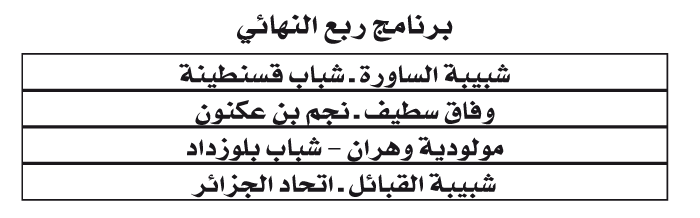 برنامج ربع النهائي
شبيبة الساورة ـ شباب قسنطينة
وفاق سطيف ـ نجم بن عكنون
مولودية وهران – شباب بلوزداد
شبيبة القبائل ـ اتحاد الجزائر